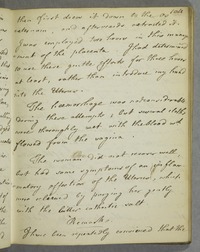 than first drew it down to the os
externum, and afterwards extracted it.
I was employed two hours in this man
ment of the placenta. I had determined
to use these gentle efforts for three hours
at least, rather than introduce my hand
into the Uterus.
The hæmorrhage was not considerable
during these attempts; but several cloths
were thoroughly wet with the blood wh
flowed from the vagina.
The woman did not recover well,
but had some symptoms of an inflam
matory affection of the Uterus, which
was relieved by purging her gently
with the bitter cathartic salt.
Remarks.
I have been repeatedly convinced that the